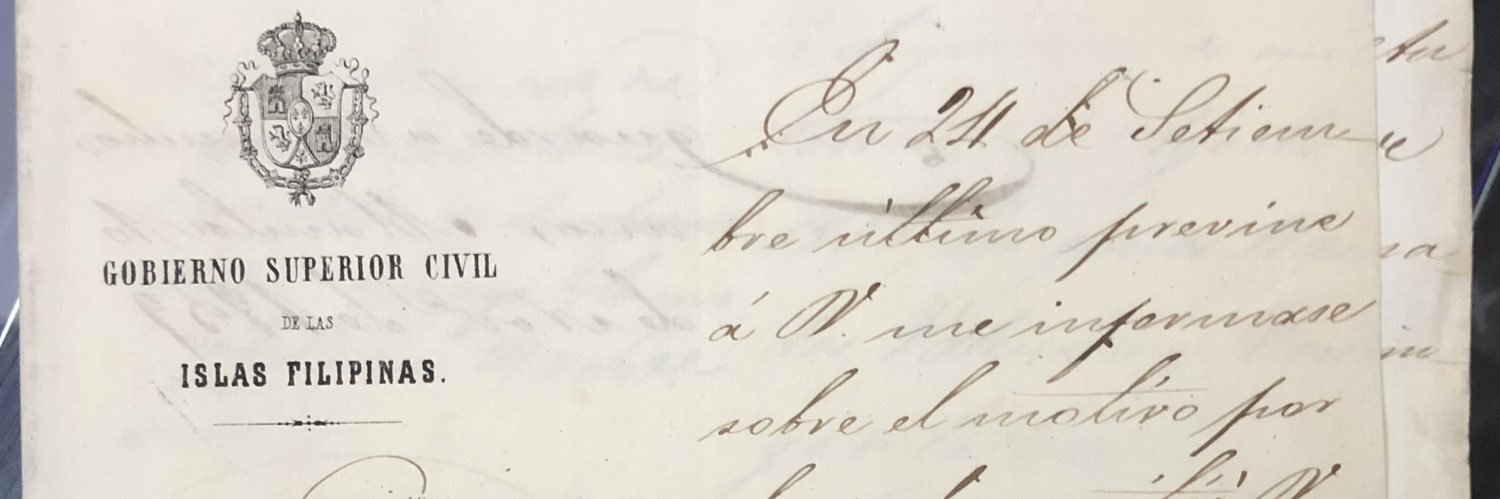 GOBIERNO SUPERIOR CIVIL
DE LAS
ISLAS FILIPINAS.
En 24 de Setiem
bre último previne
á V. me informase
sobre el motivo por